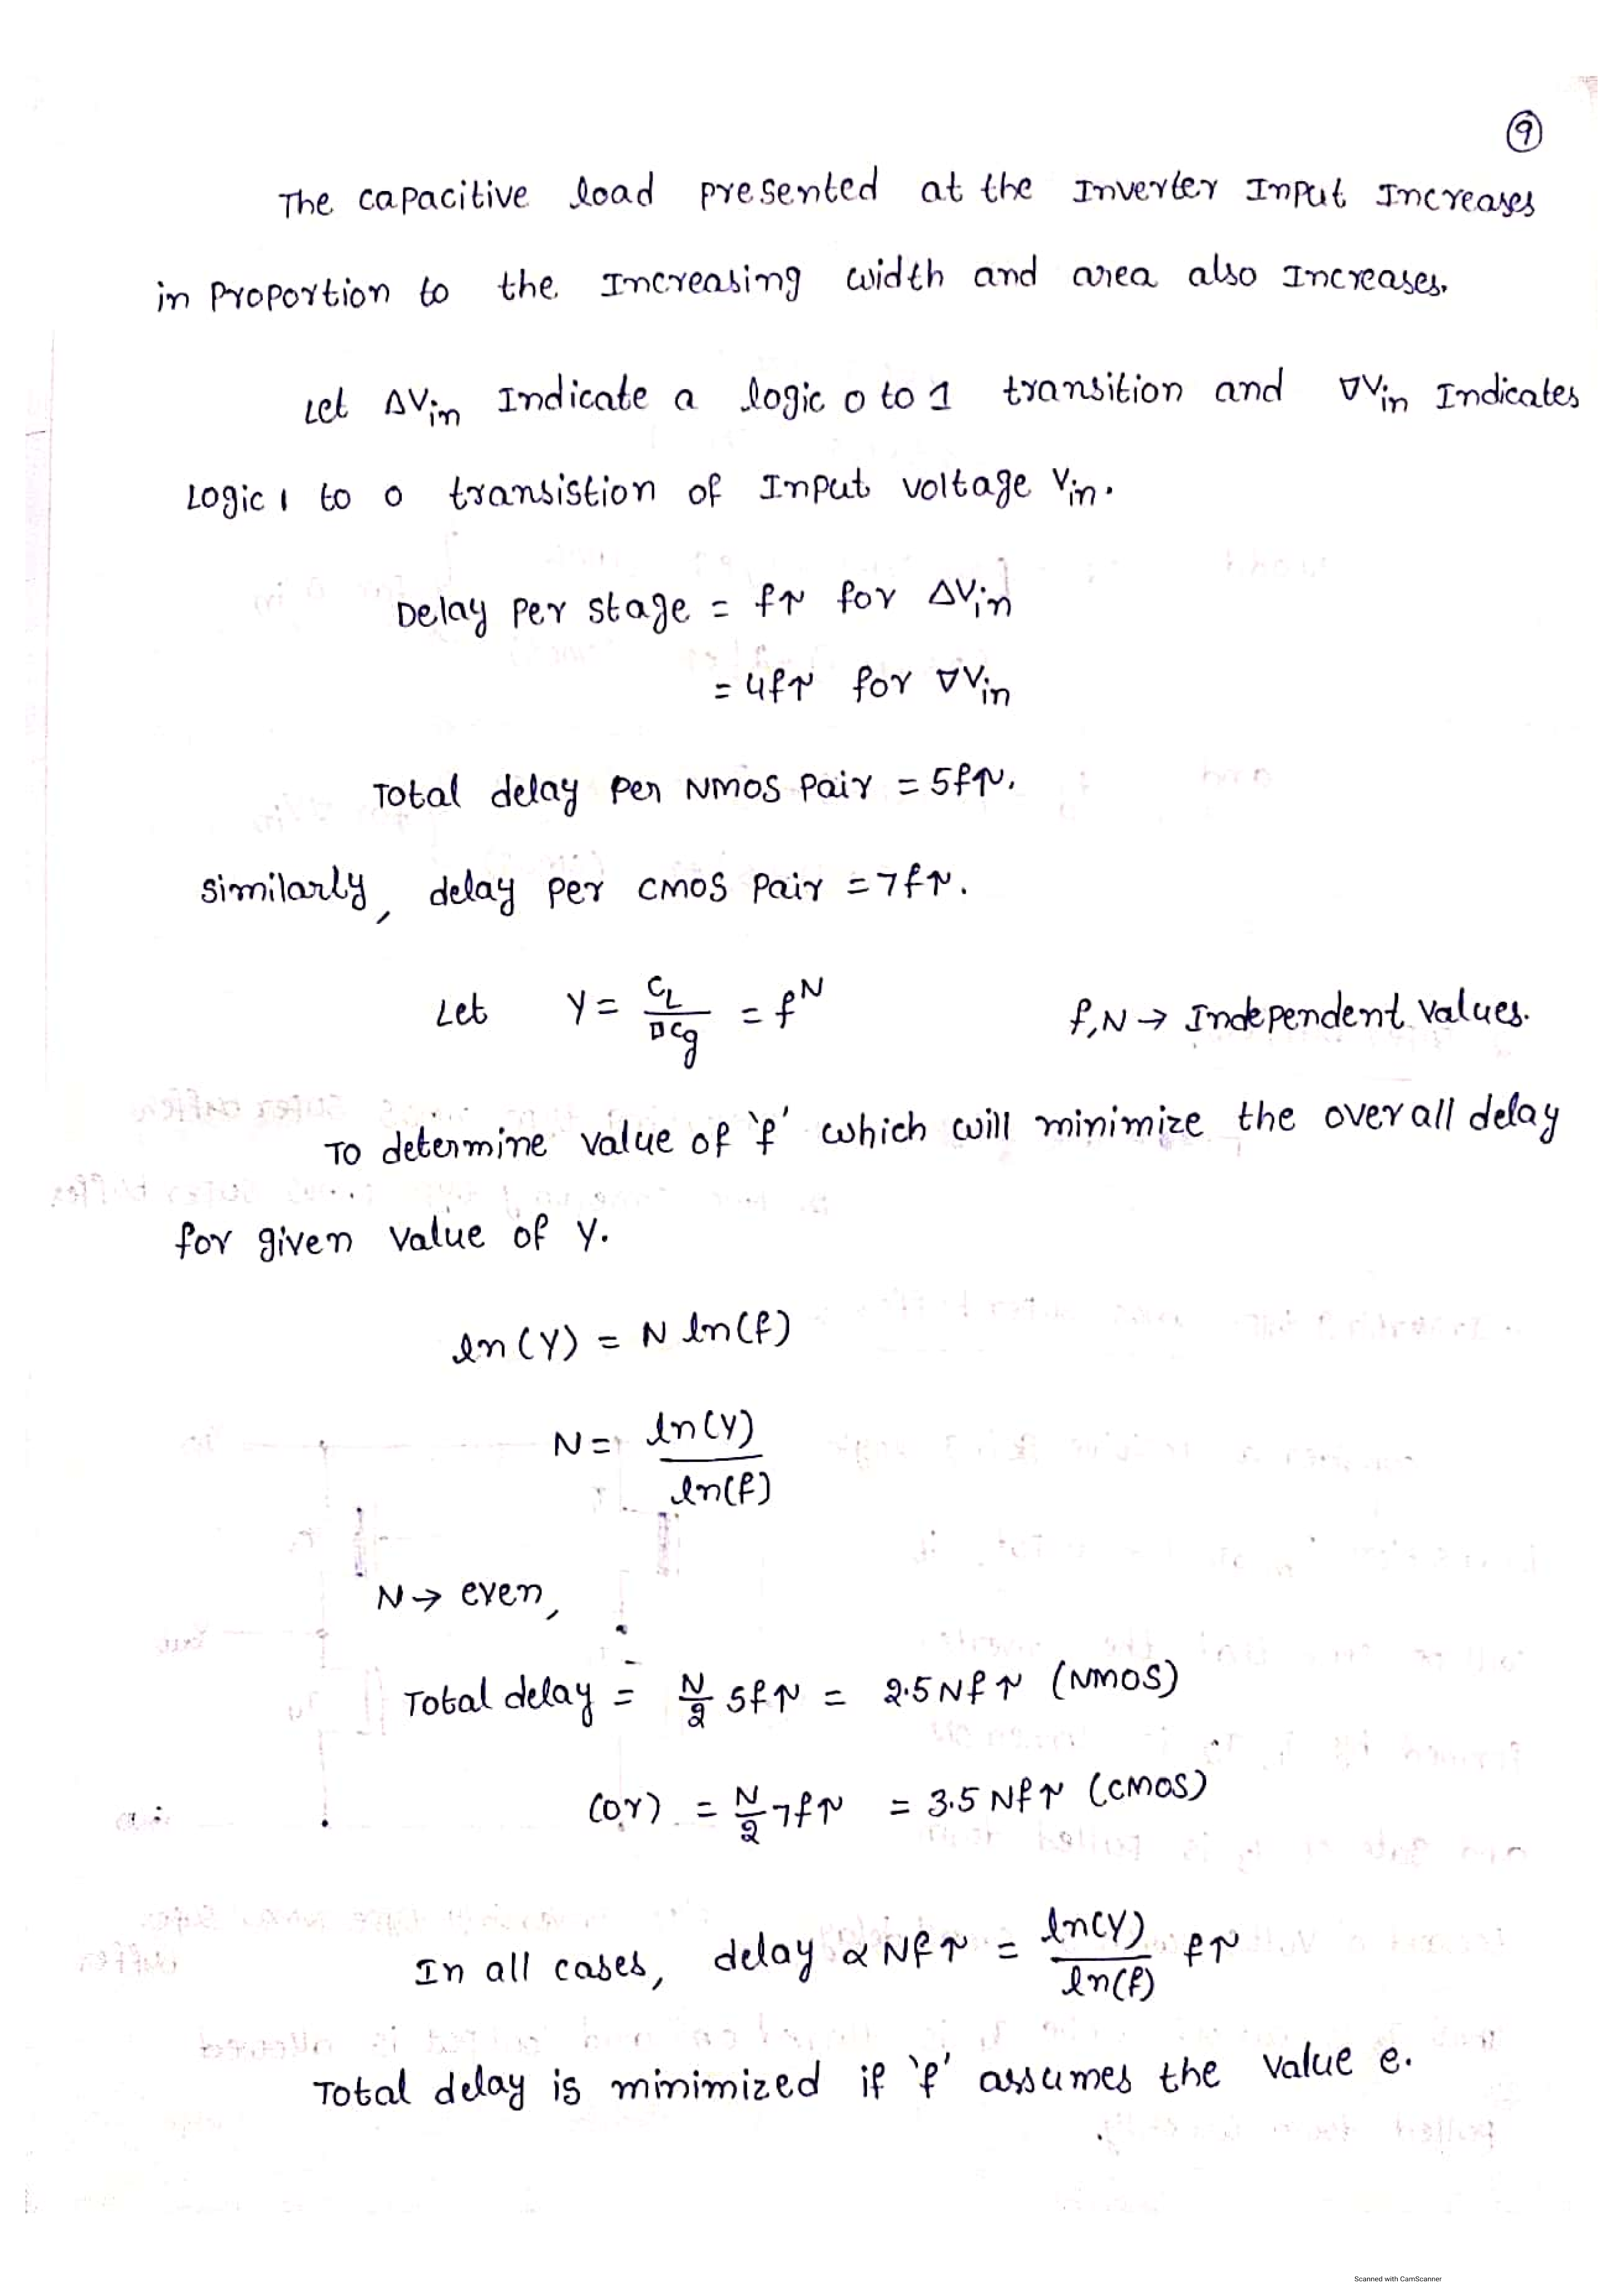 9
The capacitive load presented at the Inverter Input Increases
in Proportion to the Increasing width and area also Increases.
Let ΔVin Indicate a logic 0 to 1 transition and ∇Vin Indicates
Logic 1 to 0 transistion of Input voltage Vin.
Delay Per stage = fτ for ΔVin
= 4fτ for ∇Vin
Total delay per NMOS Pair = 5fτ.
Similarly, delay per CMOS Pair = 7fτ.
Let Y = CL/□Cg = f^N f,N → Independent values.
To determine value of 'f' which will minimize the overall delay
for given value of Y.
ln(Y) = N ln(f)
N = ln(Y)/ln(f)
N → even,
Total delay = N/2 5fτ = 2.5Nfτ (NMOS)
(or) = N/2 7fτ = 3.5Nfτ (CMOS)
In all cases, delay ∝ Nfτ = ln(Y)/ln(f) fτ
Total delay is minimized if 'f' assumes the value e.
Scanned with CamScanner